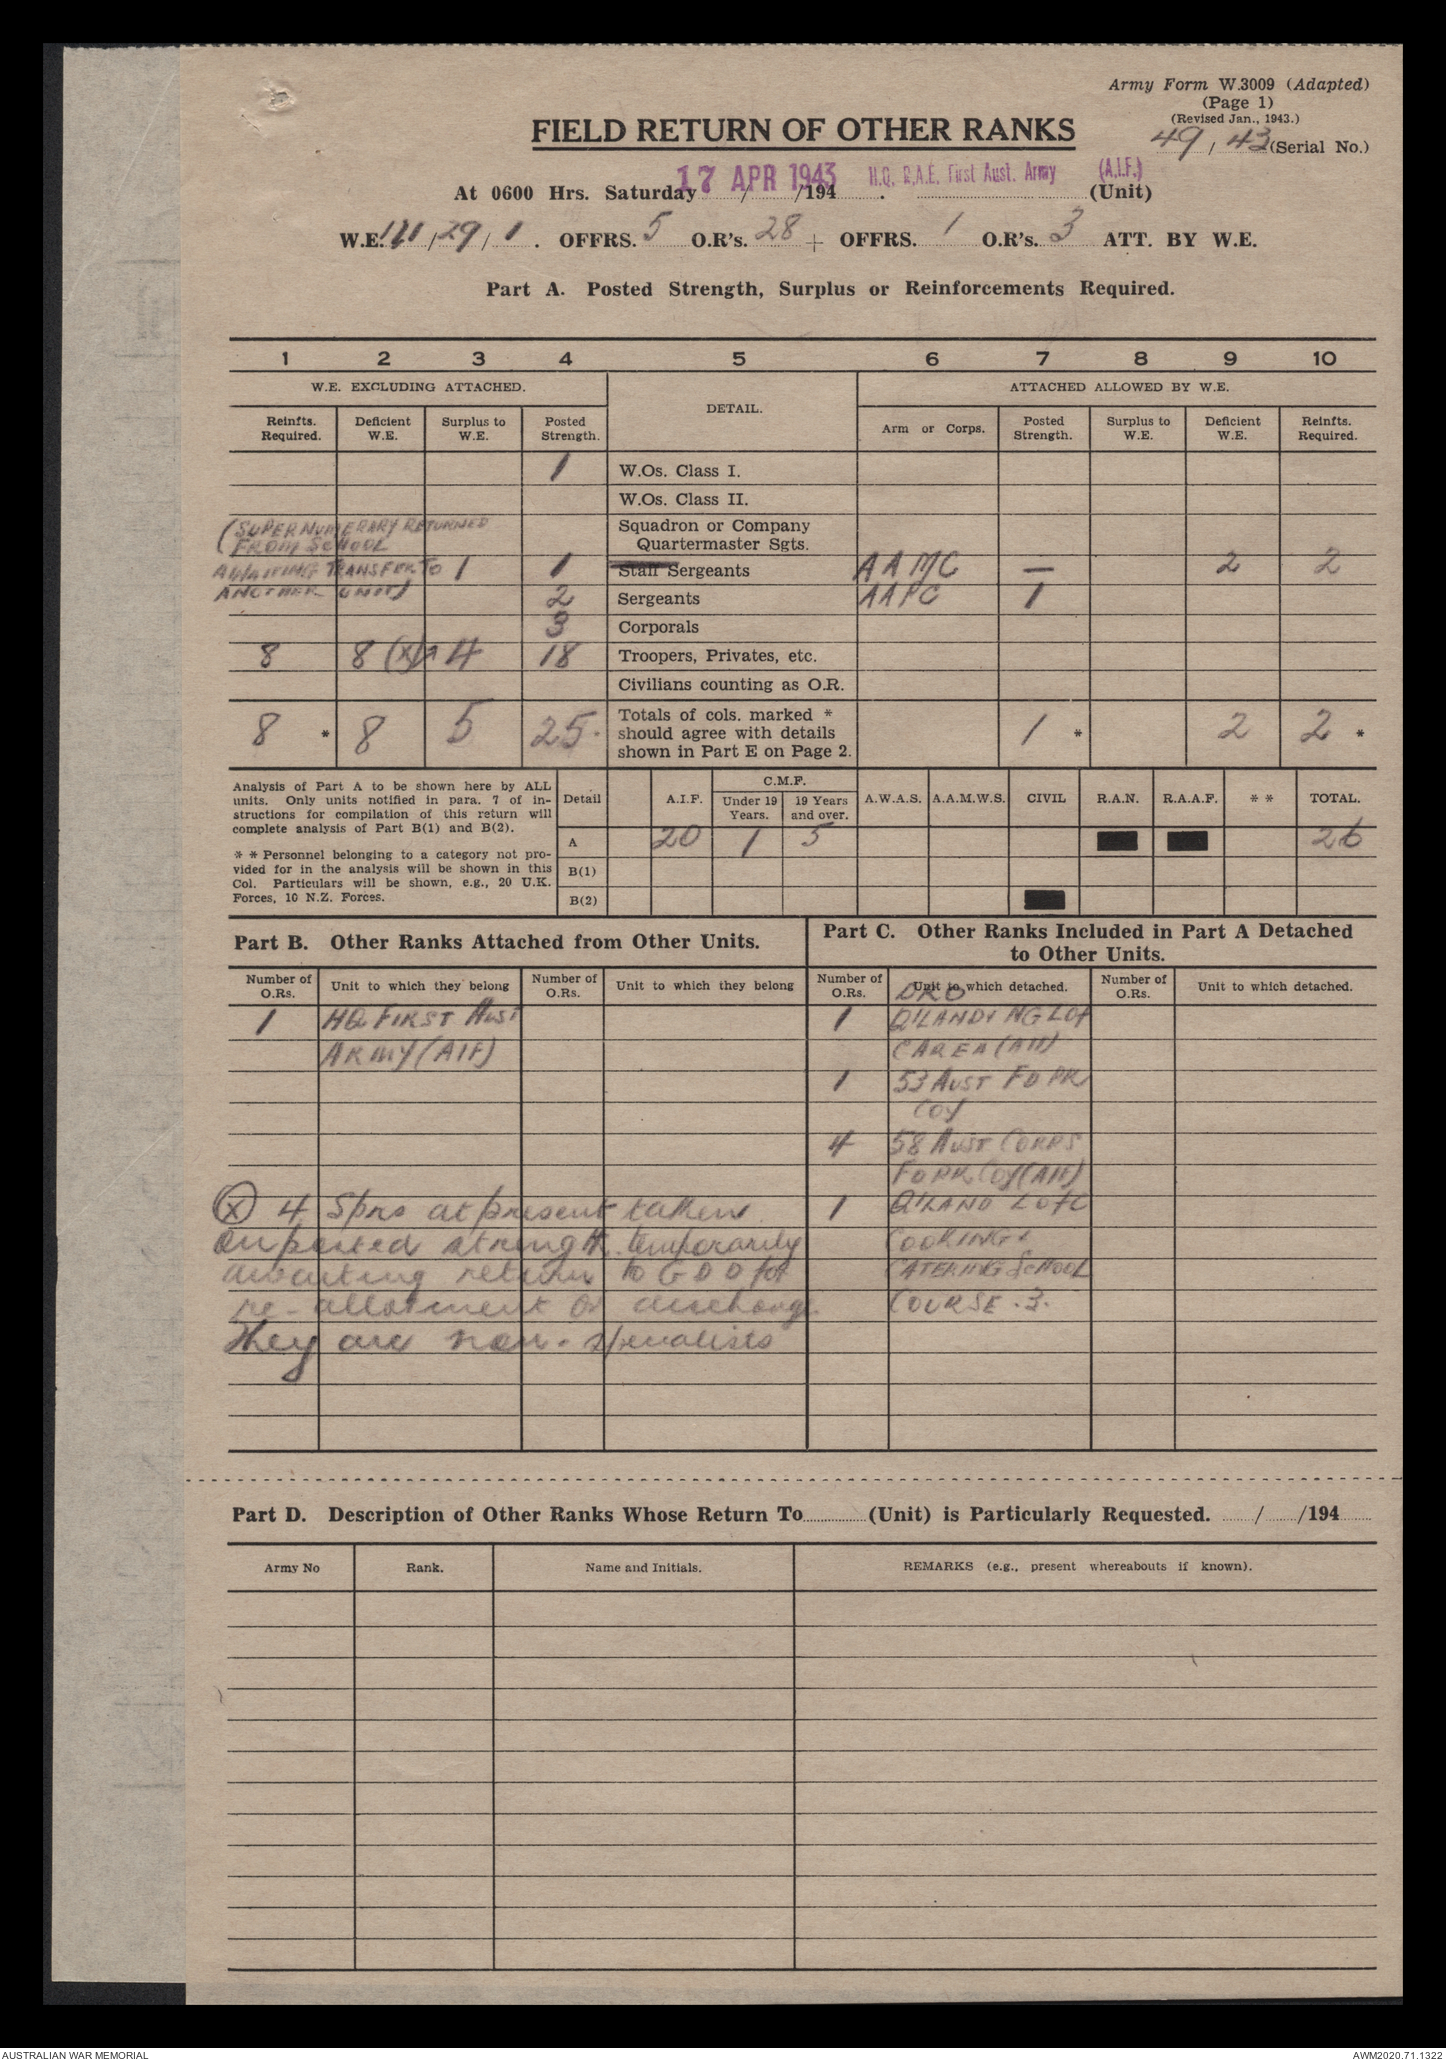 Army Form W.3009 (Adapted)
(Page 1)
(Revised Jan., 1943.)
49 / 43 (Serial No.)
FIELD RETURN OF OTHER RANKS
At 0600 Hrs. Saturday 17 APR 1943 / /194 . H.Q. R.A.E. First Aust. Army (A.I.F.) (Unit)
W.E. /29/1 . OFFRS. 5 O.R's. 28 + OFFRS. 1 O.R's. 3 ATT. BY W.E.
Part A. Posted Strength, Surplus or Reinforcements Required.
1 2 3 4 5 6 7 8 9 10
W.E. EXCLUDING ATTACHED. DETAIL. ATTACHED ALLOWED BY W.E.
Reinfts. Required. Deficient W.E. Surplus to W.E. Posted Strength. Arm or Corps. Posted Strength. Surplus to W.E. Deficient W.E. Reinfts. Required.
1 W.Os. Class I.
W.Os. Class II.
(SUPERNUMERARY RETURNED Squadron or Company
FROM SCHOOL Quartermaster Sgts.
AWAITING TRANSFER TO 1 1 Staff Sergeants AAMC — 2 2
ANOTHER UNIT) 2 Sergeants AAPC 1
3 Corporals
8 8 (X) 4 18 Troopers, Privates, etc.
Civilians counting as O.R.
8 * 8 5 25. Totals of cols. marked * should agree with details shown in Part E on Page 2. 1 * 2 2 *
Analysis of Part A to be shown here by ALL
units. Only units notified in para. 7 of in-
structions for compilation of this return will
complete analysis of Part B(1) and B(2).
* * Personnel belonging to a category not pro-
vided for in the analysis will be shown in this
Col. Particulars will be shown, e.g., 20 U.K.
Forces, 10 N.Z. Forces.
Detail A.I.F. C.M.F. Under 19 Years. 19 Years and over. A.W.A.S. A.A.M.W.S. CIVIL R.A.N. R.A.A.F. * * TOTAL.
A 20 1 5 26
B(1)
B(2)
Part B. Other Ranks Attached from Other Units.
Number of O.Rs. Unit to which they belong Number of O.Rs. Unit to which they belong
1 HQ FIRST AUST
ARMY (AIF)
(X) 4 Sprs at present taken
on posted strength temporarily
awaiting return to G D D for
re-allotment or discharge
They are non-specialists
Part C. Other Ranks Included in Part A Detached
to Other Units.
Number of O.Rs. Unit to which detached. Number of O.Rs. Unit to which detached.
DRO
1 Q'LAND L of
C AREA (AIF)
1 53 AUST FD PK
COY
4 58 AUST CORPS
FD PK COY (AIF)
1 Q'LAND L of C
COOKING &
CATERING SCHOOL
COURSE . 3.
Part D. Description of Other Ranks Whose Return To (Unit) is Particularly Requested. / /194
Army No Rank. Name and Initials. REMARKS (e.g., present whereabouts if known).
AUSTRALIAN WAR MEMORIAL AWM2020.71.1322